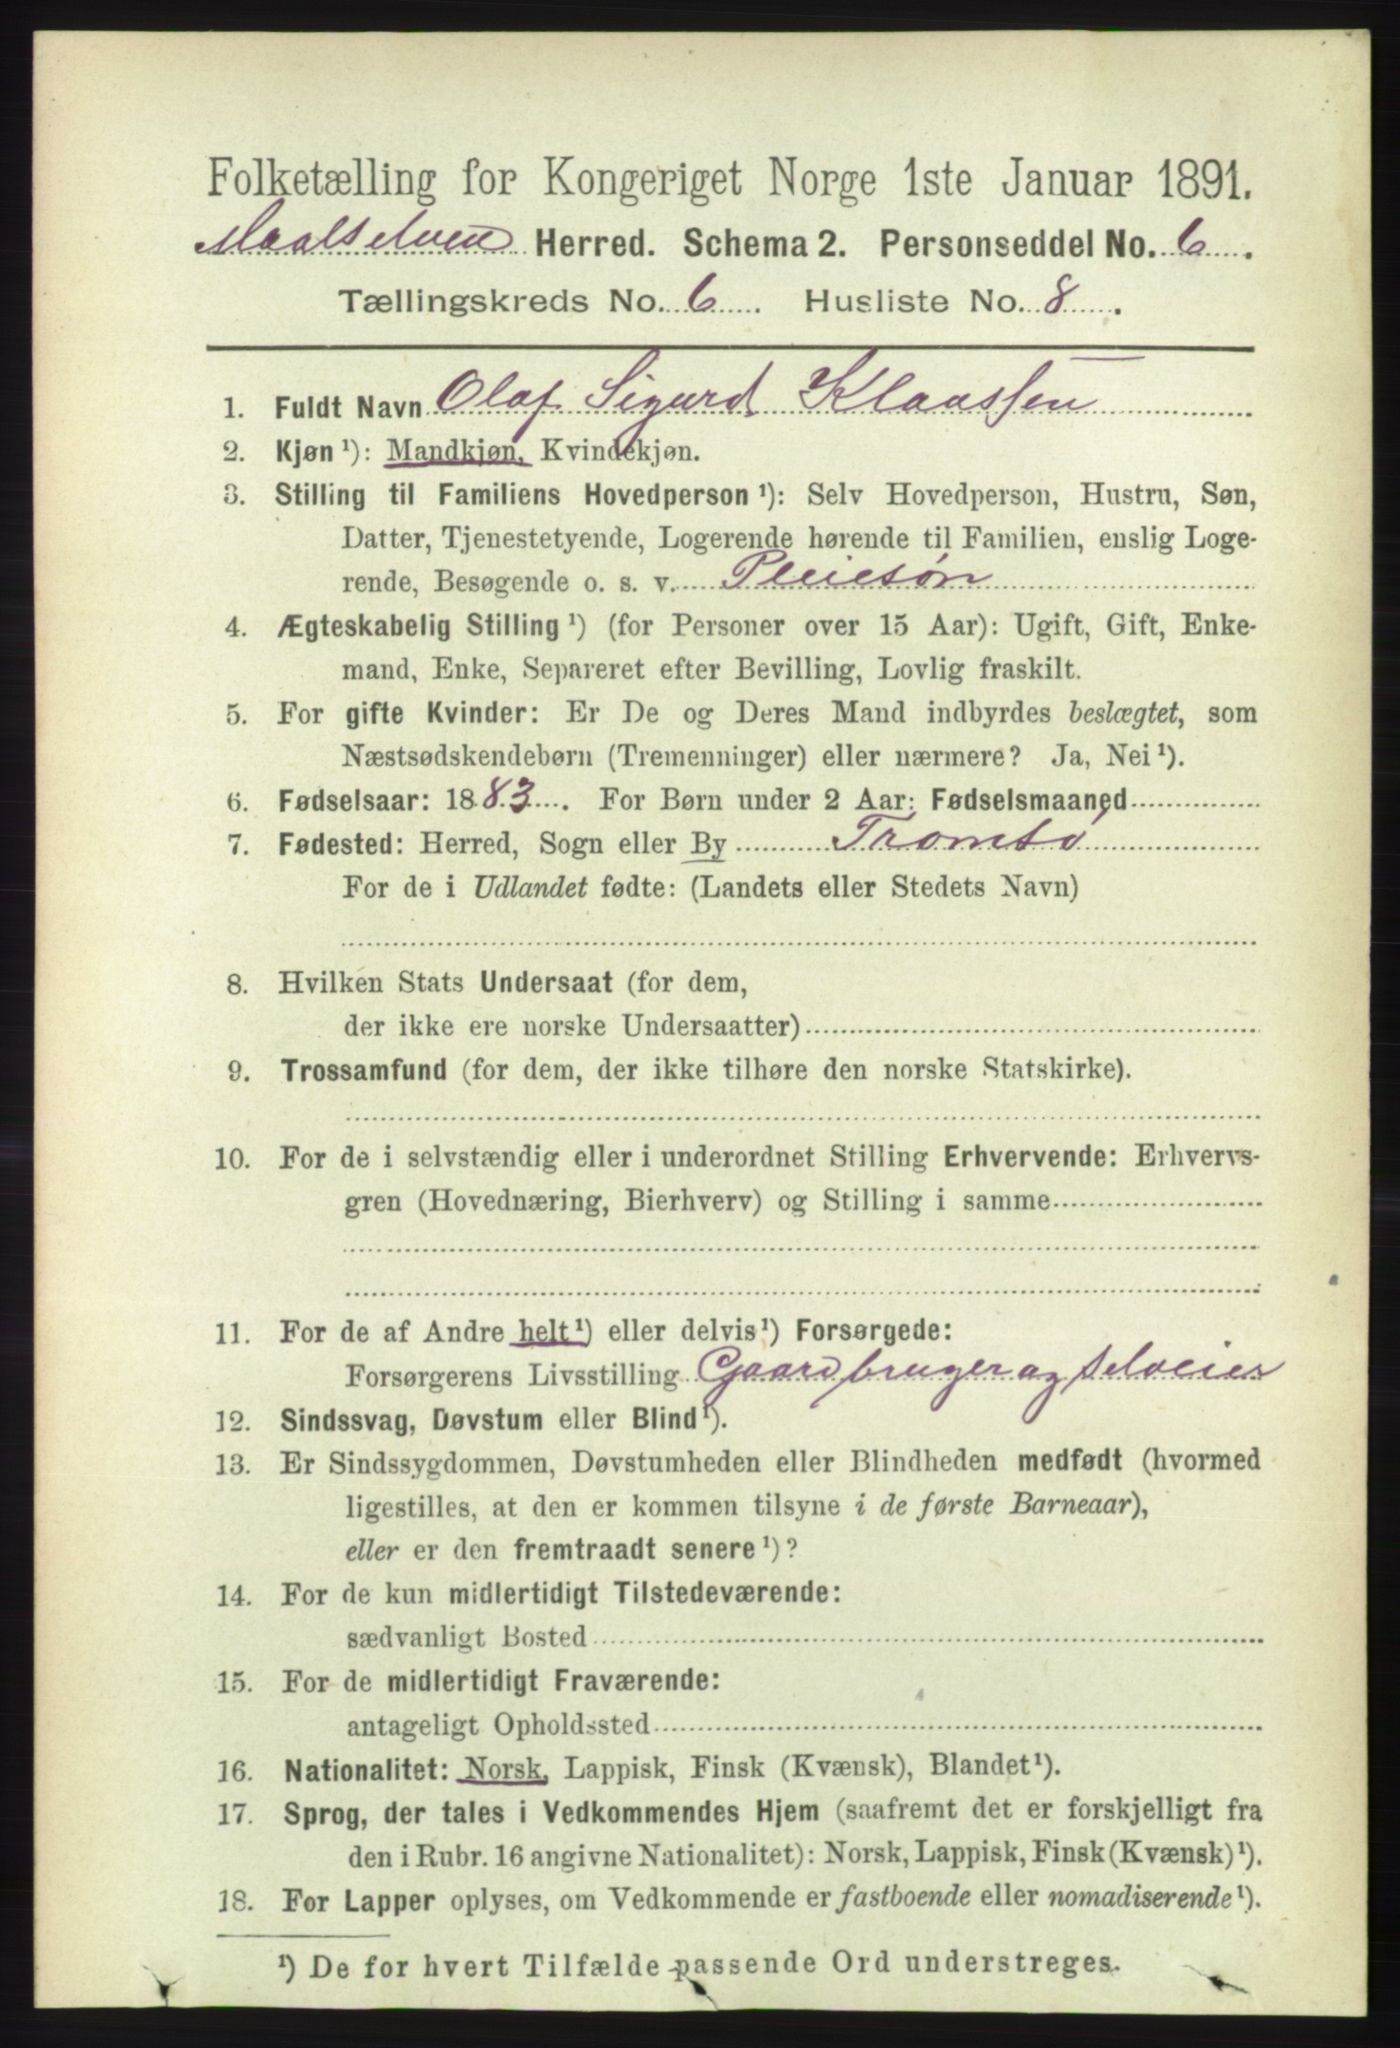 Folketælling for Kongeriget Norge 1ste Januar 1891.
Maalselven Herred. Schema 2. Personseddel No. 6.
Tællingskreds No. 6. Husliste No. 8.
1. Fuldt Navn Olaf Sigurd Klaussen
2. Kjøn ¹): Mandkjøn, Kvindekjøn.
3. Stilling til Familiens Hovedperson ¹): Selv Hovedperson, Hustru, Søn,
Datter, Tjenestetyende, Logerende hørende til Familien, enslig Loge-
rende, Besøgende o. s. v. Pleiesøn
4. Ægteskabelig Stilling ¹) (for Personer over 15 Aar): Ugift, Gift, Enke-
mand, Enke, Separeret efter Bevilling, Lovlig fraskilt.
5. For gifte Kvinder: Er De og Deres Mand indbyrdes beslægtet, som
Næstsødskendebørn (Tremenninger) eller nærmere? Ja, Nei ¹).
6. Fødselsaar: 1883. For Børn under 2 Aar: Fødselsmaaned
7. Fødested: Herred, Sogn eller By Tromsø
For de i Udlandet fødte: (Landets eller Stedets Navn)
8. Hvilken Stats Undersaat (for dem,
der ikke ere norske Undersaatter)
9. Trossamfund (for dem, der ikke tilhøre den norske Statskirke).
10. For de i selvstændig eller i underordnet Stilling Erhvervende: Erhvervs-
gren (Hovednæring, Bierhverv) og Stilling i samme
11. For de af Andre helt ¹) eller delvis ¹) Forsørgede:
Forsørgerens Livsstilling Gaardbruger og selveier
12. Sindssvag, Døvstum eller Blind ¹).
13. Er Sindssygdommen, Døvstumheden eller Blindheden medfødt (hvormed
ligestilles, at den er kommen tilsyne i de første Barneaar),
eller er den fremtraadt senere ¹)?
14. For de kun midlertidigt Tilstedeværende:
sædvanligt Bosted
15. For de midlertidigt Fraværende:
antageligt Opholdssted
16. Nationalitet: Norsk, Lappisk, Finsk (Kvænsk), Blandet ¹).
17. Sprog, der tales i Vedkommendes Hjem (saafremt det er forskjelligt fra
den i Rubr. 16 angivne Nationalitet): Norsk, Lappisk, Finsk (Kvænsk) ¹).
18. For Lapper oplyses, om Vedkommende er fastboende eller nomadiserende ¹).
¹) De for hvert Tilfælde passende Ord understreges.